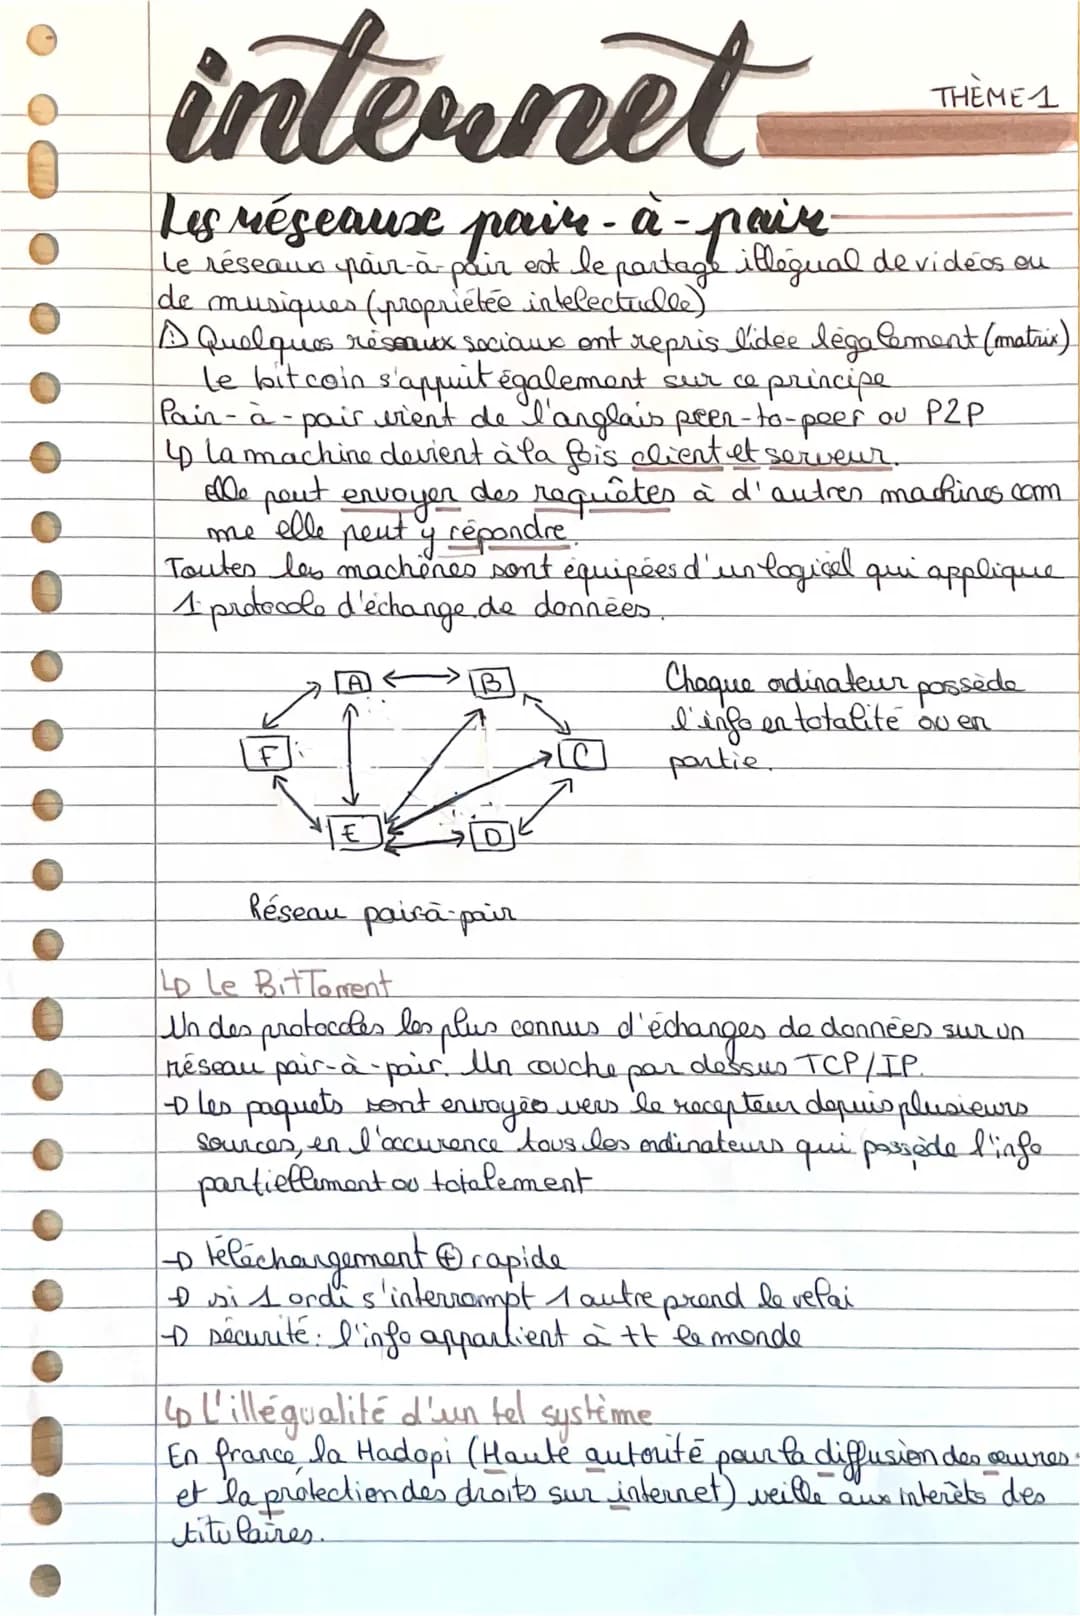 internet
THÈME 1
Les réseaux pair-à-pair
Le réseaux pair-à-pair est le partage illégual de vidéos ou
de musiques (propriétée intelectuelle)
⚠ Quelques réseaux sociaux ont repris l'idée légalement (matrix)
Le bitcoin s'appuit également sur ce principe
Pair-à-pair vient de l'anglais peer-to-peer ou P2P
↳ La machine devient à la fois client et serveur.
elle peut envoyer des requêtes à d'autres machines com
me elle peut y répondre.
Toutes les machines sont équipées d'un logiciel qui applique
1 protocole d'échange de données.
A
B
F
C
E
D
Chaque ordinateur possède
l'info en totalité ou en
partie.
Réseau pair-à-pair
↳ Le BitTorrent
Un des protocoles les plus connus d'échanges de données sur un
réseau pair-à-pair. Un couche par dessus TCP/IP.
→ les paquets sont envoyés vers le recepteur depuis plusieurs
sources, en l'accurence tous les ordinateurs qui possède l'info
partiellement ou totalement
→ téléchargement ⊕ rapide
→ si 1 ordi s'interrompt 1 autre prend le relai
→ sécurité: l'info appartient à tt le monde
↳ L'illégualité d'un tel système
En france la Hadopi (Haute autorité pour la diffusion des œuvres
et la protection des droits sur internet) veille aux interêts des
titulaires.